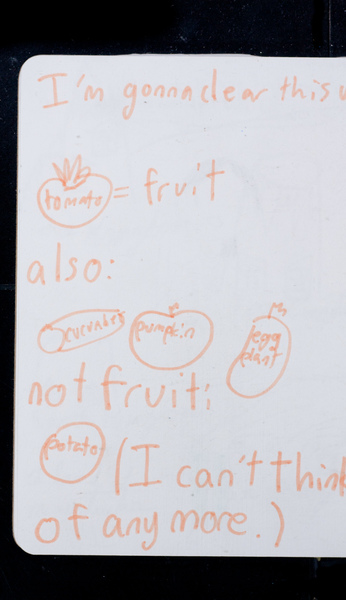 I'm gonna clear this
tomato = fruit
also:
cucumber pumpkin egg
plant
not fruit:
potato (I can't think
of any more.)